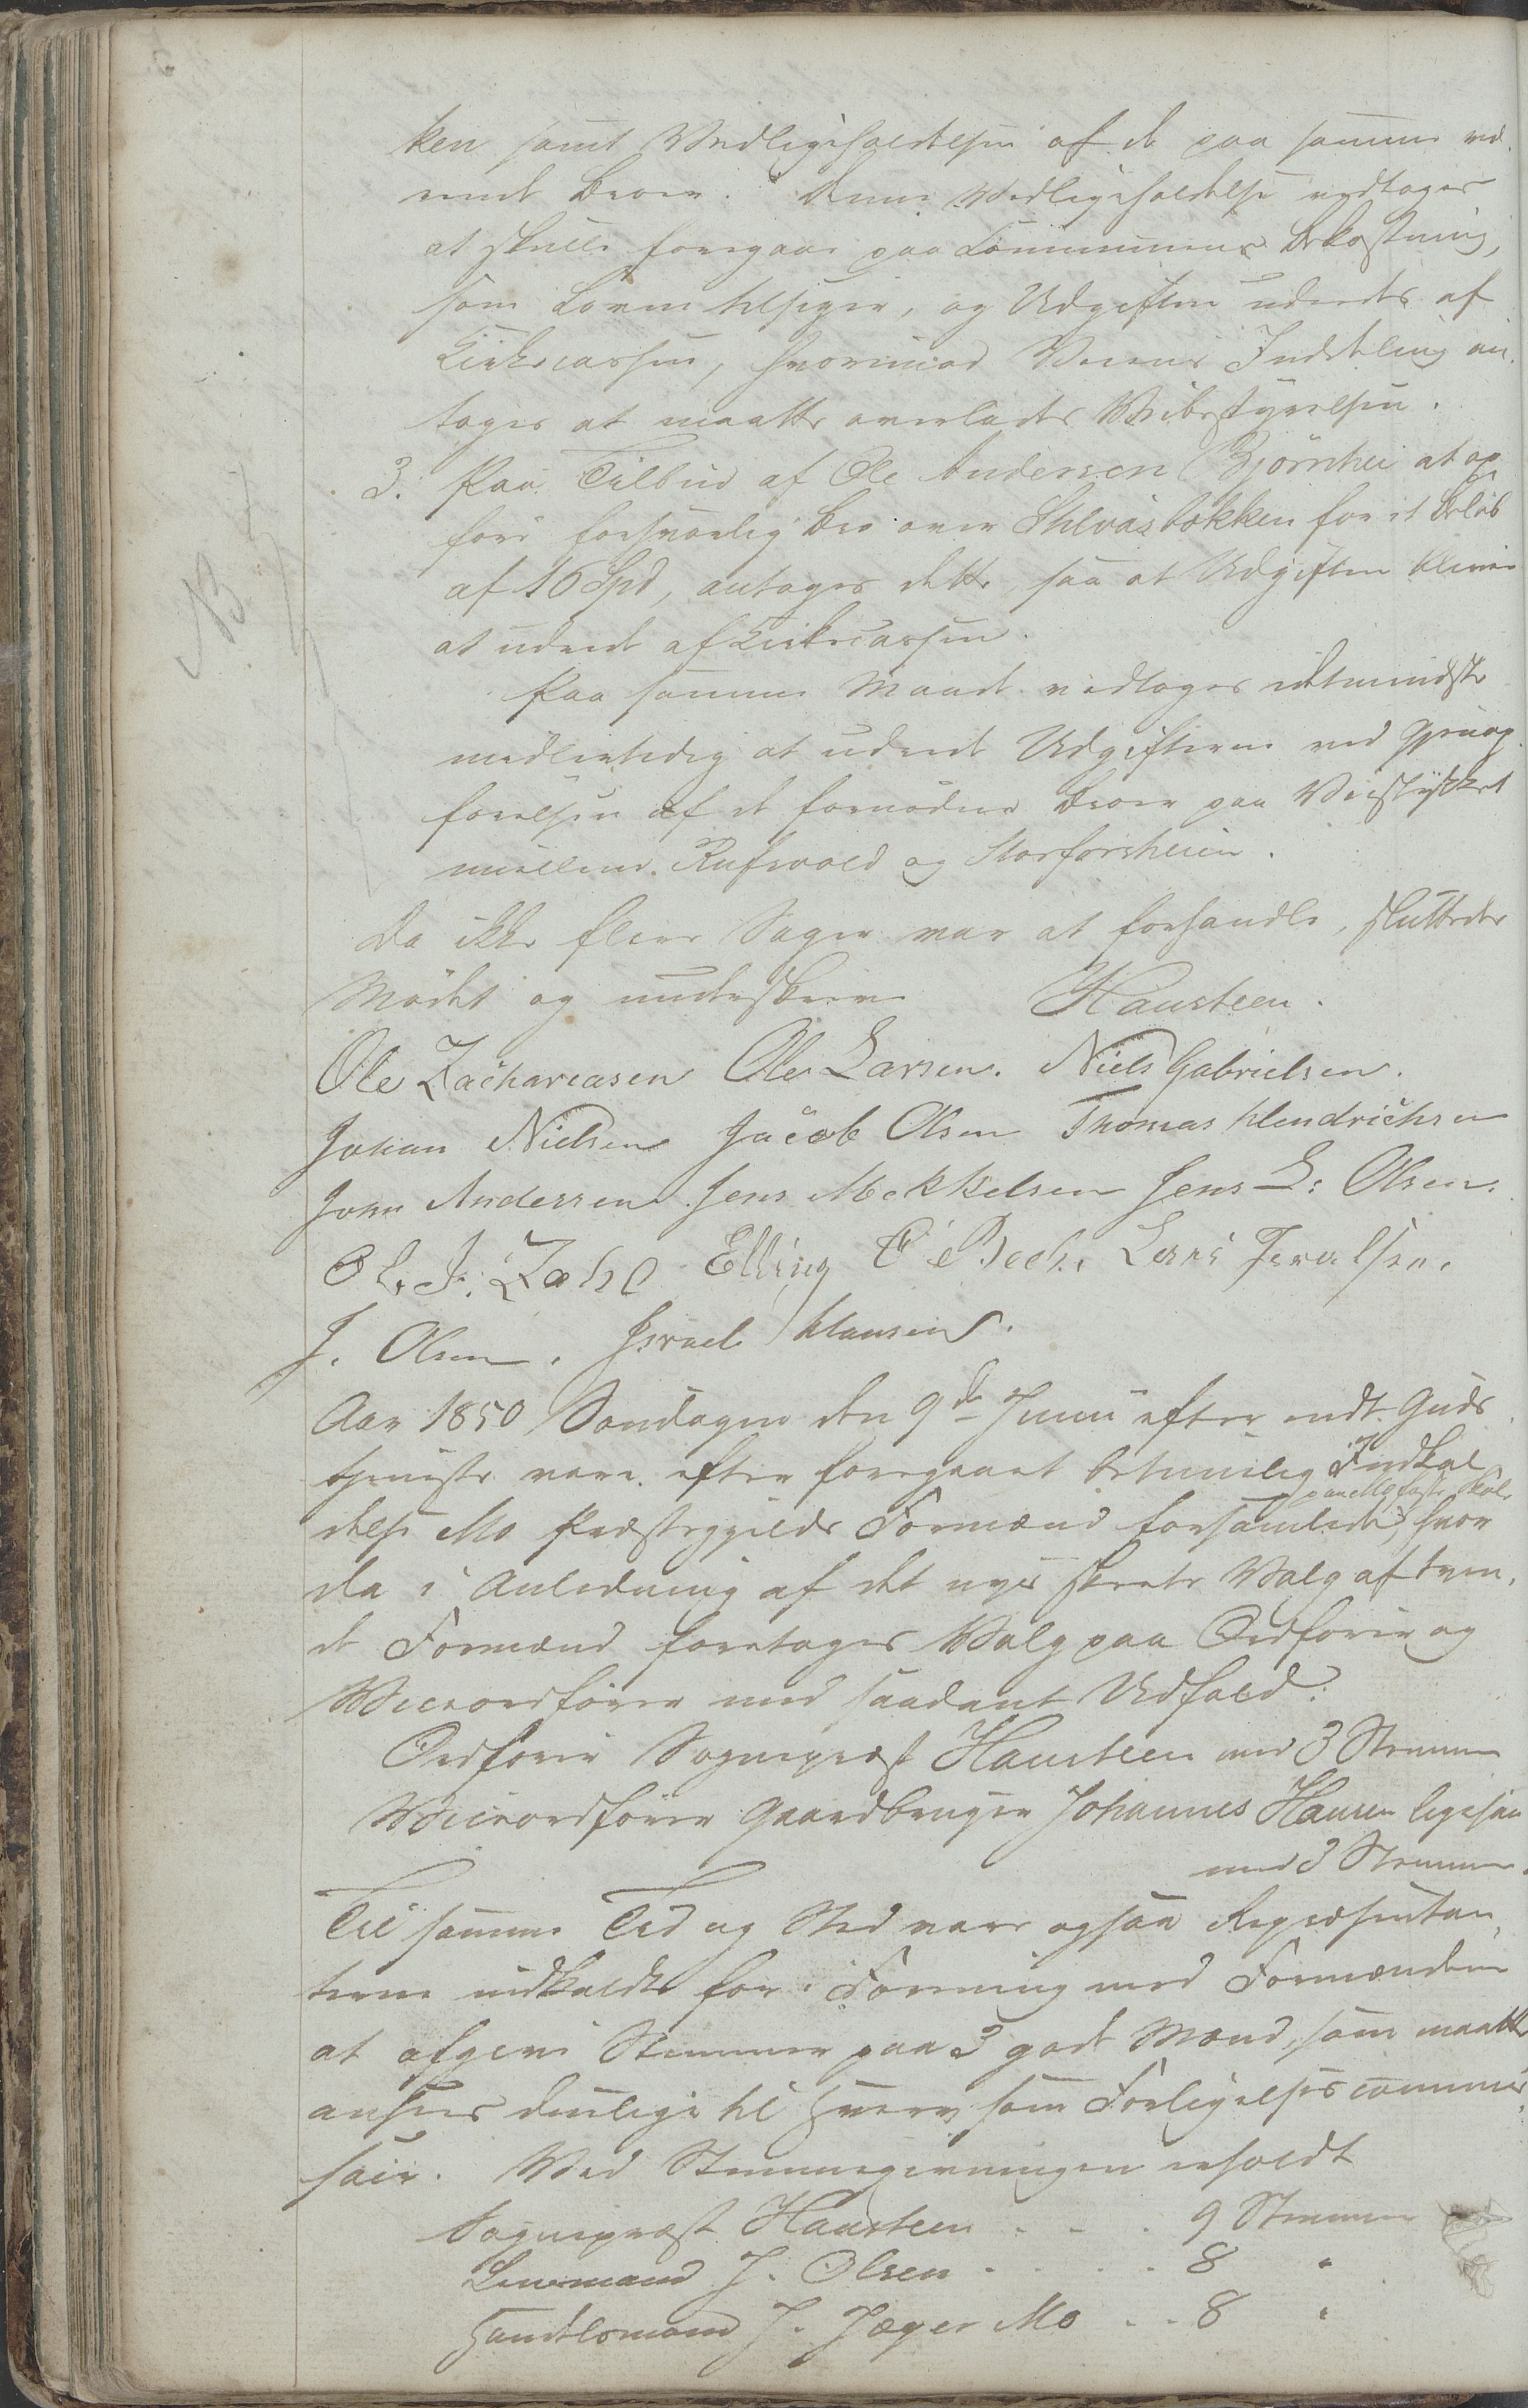 ken samt Vedligeholdelsen af de paa samme væ¬
rende Broer. Denne Vedligeholdelse vedtages
at skulle foregaae paa Communens Bekostning,
som Loven tilsiger, og Udgiften udredes af
Kirkecassen, hvorimod Veiens Inddeling an¬
tages at maatte overlades Veibestyrelsen.
3. Paa Tilbud af Ole Andersen Bjørnhei at op¬
føre forsvarlig Bro over Selvasbækken for et Beløb
af 16 Spd, antages dette, saa at Udgiften bliver
at udrede af Kirkecassen.
Paa samme Maade vedtages idetmindste
midlertidig at udrede Udgifterne ved Gjenop¬
førelsen af de fornødne Broer paa Veistykket
mellem Rufsvold og Storforsheien.
Da ikke flere Sager var at forhandle, sluttedes
Mødet og underskrives Hansteen.
Ole Zachariasen Ole Larsen. Niels Gabrielsen.
Johan Nielsen Jacob Olsen Thomas Hendrichsen
John Andersen. Jens Mekkelsen Jens L: Olsen.
O L. J. Zahl Elling C Bech. Lars Iversen.
J. Olsen. Israel Klausen.
Aar 1850 Søndagen den 9de Juni efter endt Guds¬
tjeneste vare efter foregaaet betimelig Indkal¬
paa Mo faste Skole
delse Mo Præstegjelds Formænd forsamlede, hvor
da i Anledning af det nye skeete Valg af tven¬
de Formænd foretoges Valg paa Ordfører og
Viceordfører med saadant Udfald:
Ordfører Sognepræst Hansteen med 3 Stemmer
Viceordfører Gaardbruger Johannes Hansen ligesaa
med 3 Stemmer.
Til samme Tid og Sted vare ogsaa Repræsentan¬
terne indkaldte for i Forening med Formændene
at afgive Stemmer paa 3 gode Mænd, som maatte
ansees duelige til Hverv som Forligelsescommis¬
sair. Ved Stemmegivningen erholdt
Sognepræst Hansteen . . . 9 Stemmer
Lensmand J. Olsen . . . . 8 "
Handelsmand J. Jæger Mo . . 8 "